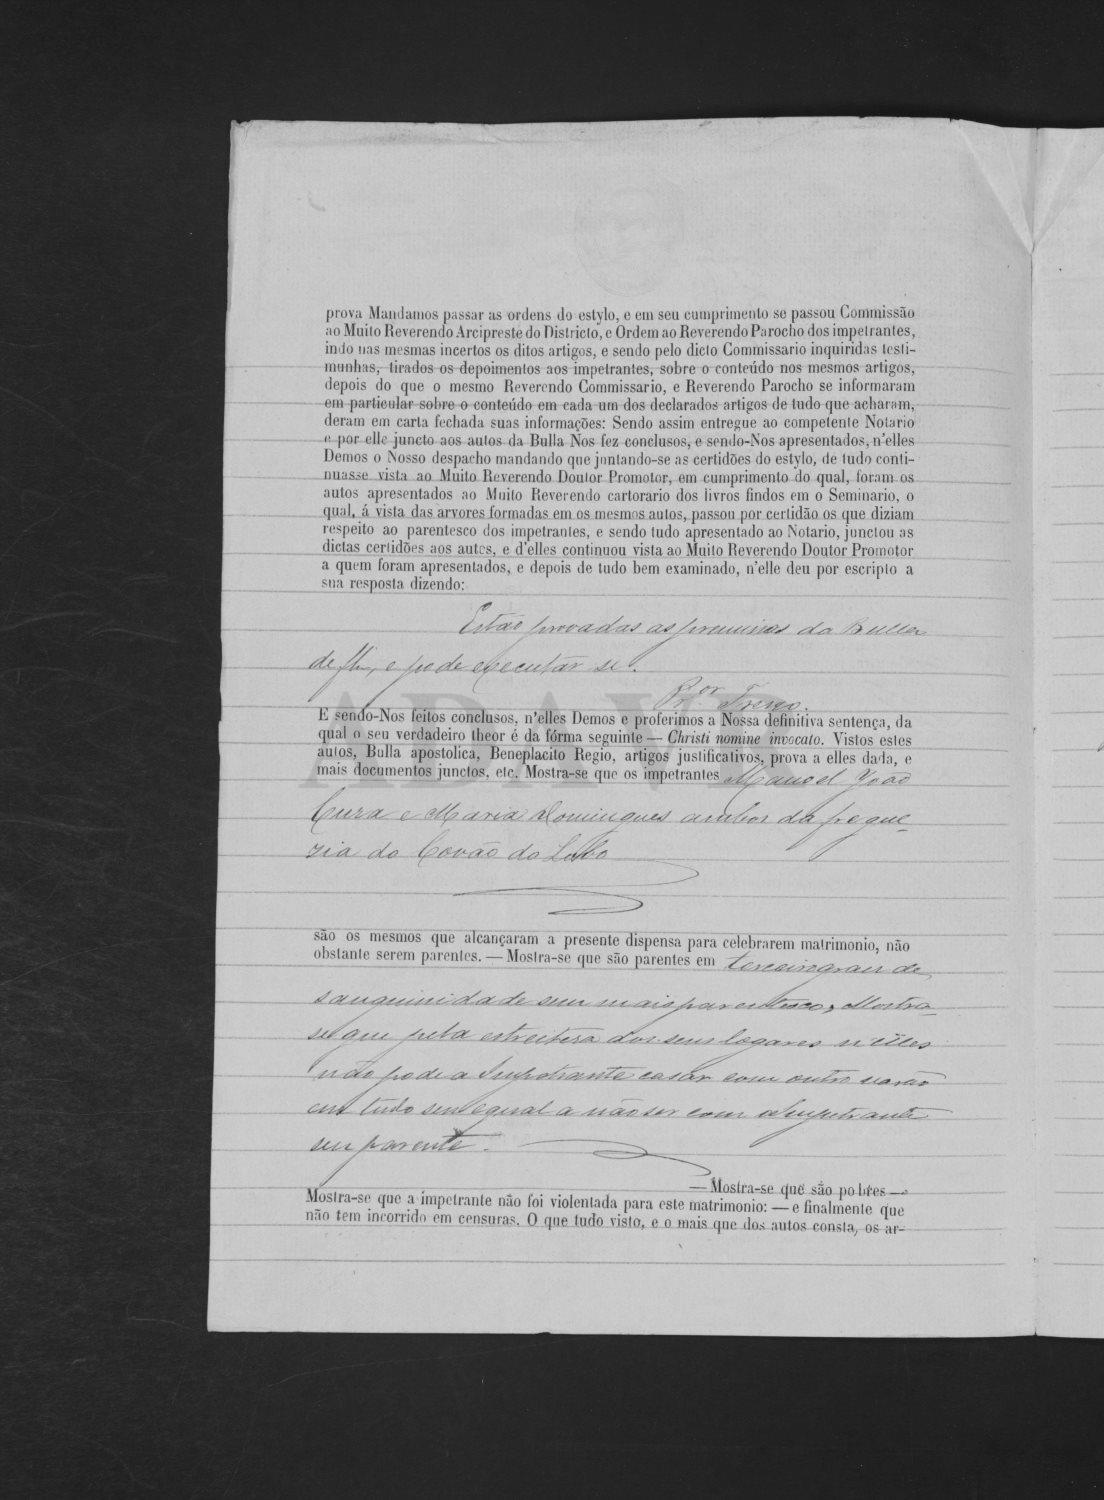 prova Mandamos passar as ordens do estylo, e em seu cumprimento se passou Commissão
ao Muito Reverendo Arcipreste do Districto, e Ordem ao Reverendo Parocho dos impetrantes,
indo nas mesmas incertos os ditos artigos, e sendo pelo dicto Commissario inquiridas testi-
munhas, tirados os depoimentos aos impetrantes, sobre o conteúdo nos mesmos artigos,
depois do que o mesmo Reverendo Commissario, e Reverendo Parocho se informaram
em particular sobre o conteúdo em cada um dos declarados artigos de tudo que acharam,
deram em carta fechada suas informações: Sendo assim entregue ao competente Notario
e por elle juncto aos autos da Bulla Nos fez conclusos, e sendo-Nos apresentados, n'elles
Demos o Nosso despacho mandando que juntando-se as certidões do estylo, de tudo conti-
nuasse vista ao Muito Reverendo Doutor Promotor, em cumprimento do qual, foram os
autos apresentados ao Muito Reverendo cartorario dos livros findos em o Seminario, o
qual, á vista das arvores formadas em os mesmos autos, passou por certidão os que diziam
respeito ao parentesco dos impetrantes, e sendo tudo apresentado ao Notario, junctou as
dictas certidões aos autos, e d'elles continuou vista ao Muito Reverendo Doutor Promotor
a quem foram apresentados, e depois de tudo bem examinado, n'elle deu por escripto a
sua resposta dizendo:
Estão provadas as premissas da Bulla
de fl, e pode executar se.
Pr.or
E sendo-Nos feitos conclusos, n'elles Demos e proferimos a Nossa definitiva sentença, da
qual o seu verdadeiro theor é da fórma seguinte — Christi nomine invocato. Vistos estes
autos, Bulla apostolica, Beneplacito Regio, artigos justificativos, prova a elles dada, e
mais documentos junctos, etc. Mostra-se que os impetrantes Manoel João
Cura e Maria Domingues ambos da fregue-
zia do Covão do Lobo
são os mesmos que alcançaram a presente dispensa para celebrarem matrimonio, não
obstante serem parentes. — Mostra-se que são parentes em terceiro grau de
sanguinidade sem mais parentesco, Mostra-
se que pela estreiteza dos seus logares n'elles
não pode a Impetrante casar com outro varão
em tudo seu egual a não ser com o Impetrante
seu parente.
— Mostra-se que são pobres —
Mostra-se que a impetrante não foi violentada para este matrimonio: — e finalmente que
não tem incorrido em censuras. O que tudo visto, e o mais que dos autos consta, os ar-
ADAVR